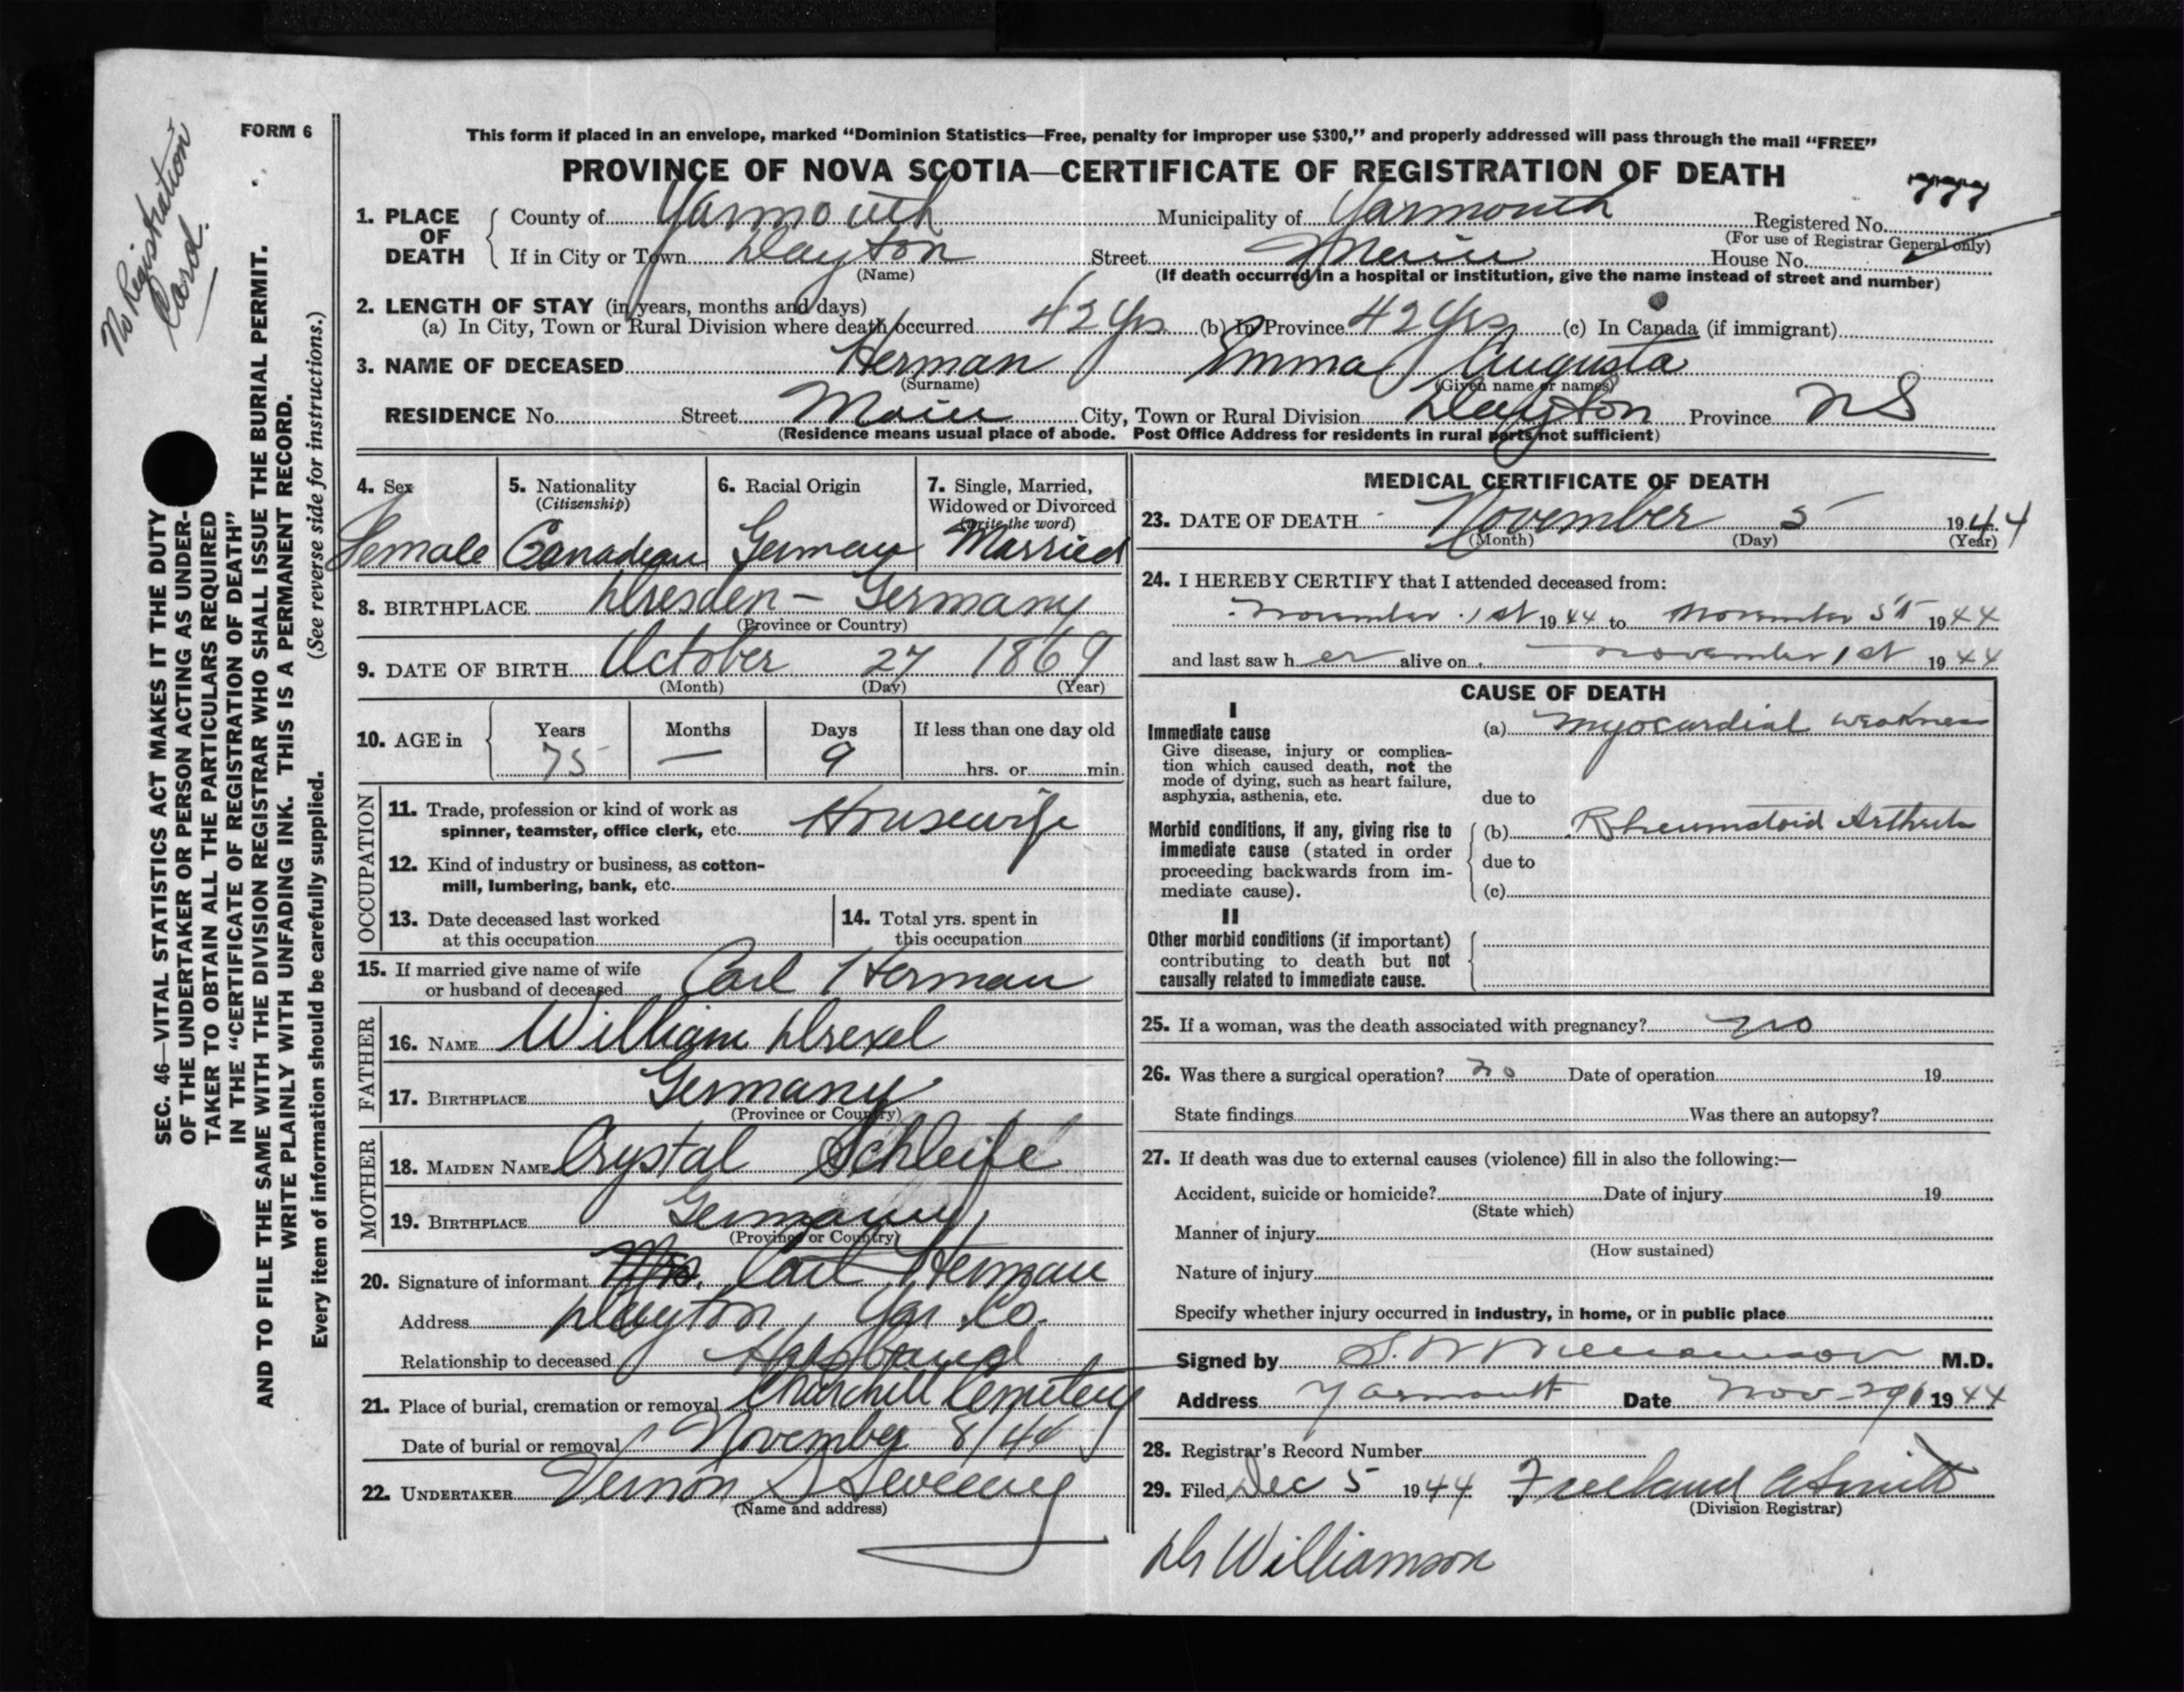 No Registration
Card.
FORM 6
SEC. 46—VITAL STATISTICS ACT MAKES IT THE DUTY
OF THE UNDERTAKER OR PERSON ACTING AS UNDER-
TAKER TO OBTAIN ALL THE PARTICULARS REQUIRED
IN THE "CERTIFICATE OF REGISTRATION OF DEATH"
AND TO FILE THE SAME WITH THE DIVISION REGISTRAR WHO SHALL ISSUE THE BURIAL PERMIT.
WRITE PLAINLY WITH UNFADING INK. THIS IS A PERMANENT RECORD.
Every item of information should be carefully supplied. (See reverse side for instructions.)
This form if placed in an envelope, marked "Dominion Statistics—Free, penalty for improper use $300," and properly addressed will pass through the mail "FREE"
PROVINCE OF NOVA SCOTIA—CERTIFICATE OF REGISTRATION OF DEATH
777
1. PLACE OF DEATH County of Yarmouth Municipality of Yarmouth Registered No.
(For use of Registrar General only)
If in City or Town Dayton Street Main House No.
(Name) (If death occurred in a hospital or institution, give the name instead of street and number)
2. LENGTH OF STAY (in years, months and days)
(a) In City, Town or Rural Division where death occurred 42 Yrs (b) In Province 42 Yrs (c) In Canada (if immigrant)
3. NAME OF DECEASED Herman Emma Augusta
(Surname) (Given name or names)
RESIDENCE No. Street Main City, Town or Rural Division Dayton Province NS
(Residence means usual place of abode. Post Office Address for residents in rural parts not sufficient)
4. Sex 5. Nationality 6. Racial Origin 7. Single, Married,
(Citizenship) Widowed or Divorced
(write the word)
Female Canadian German Married
8. BIRTHPLACE Dresden - Germany
(Province or Country)
9. DATE OF BIRTH October 27 1869
(Month) (Day) (Year)
10. AGE in Years Months Days If less than one day old
75 — 9 hrs. or min.
OCCUPATION
11. Trade, profession or kind of work as
spinner, teamster, office clerk, etc. Housewife
12. Kind of industry or business, as cotton-
mill, lumbering, bank, etc.
13. Date deceased last worked 14. Total yrs. spent in
at this occupation this occupation
15. If married give name of wife
or husband of deceased Carl Herman
FATHER
16. NAME William Drexel
17. BIRTHPLACE Germany
(Province or Country)
MOTHER
18. MAIDEN NAME Crystal Schleife
19. BIRTHPLACE Germany
(Province or Country)
20. Signature of informant Mrs. Carl Herman
Address Dayton, Yar. Co.
Relationship to deceased Husband
21. Place of burial, cremation or removal Churchill Cemetery
Date of burial or removal November 8/44
22. UNDERTAKER Vernon S Sweeny
(Name and address)
MEDICAL CERTIFICATE OF DEATH
23. DATE OF DEATH November 5 1944
(Month) (Day) (Year)
24. I HEREBY CERTIFY that I attended deceased from:
November 1st 1944 to November 5th 1944
and last saw her alive on November 1st 1944
CAUSE OF DEATH
I
Immediate cause (a) myocardial weakness
Give disease, injury or complica-
tion which caused death, not the
mode of dying, such as heart failure,
asphyxia, asthenia, etc. due to
Morbid conditions, if any, giving rise to (b) Rheumatoid Arthritis
immediate cause (stated in order
proceeding backwards from im- due to
mediate cause). (c)
II
Other morbid conditions (if important)
contributing to death but not
causally related to immediate cause.
25. If a woman, was the death associated with pregnancy? no
26. Was there a surgical operation? no Date of operation 19
State findings Was there an autopsy?
27. If death was due to external causes (violence) fill in also the following:—
Accident, suicide or homicide? Date of injury 19
(State which)
Manner of injury
(How sustained)
Nature of injury
Specify whether injury occurred in industry, in home, or in public place
Signed by S. W Williamson M.D.
Address Yarmouth Date Nov 1944
28. Registrar's Record Number
29. Filed Dec 5 1944 Freeland Smith
(Division Registrar)
Dr Williamson